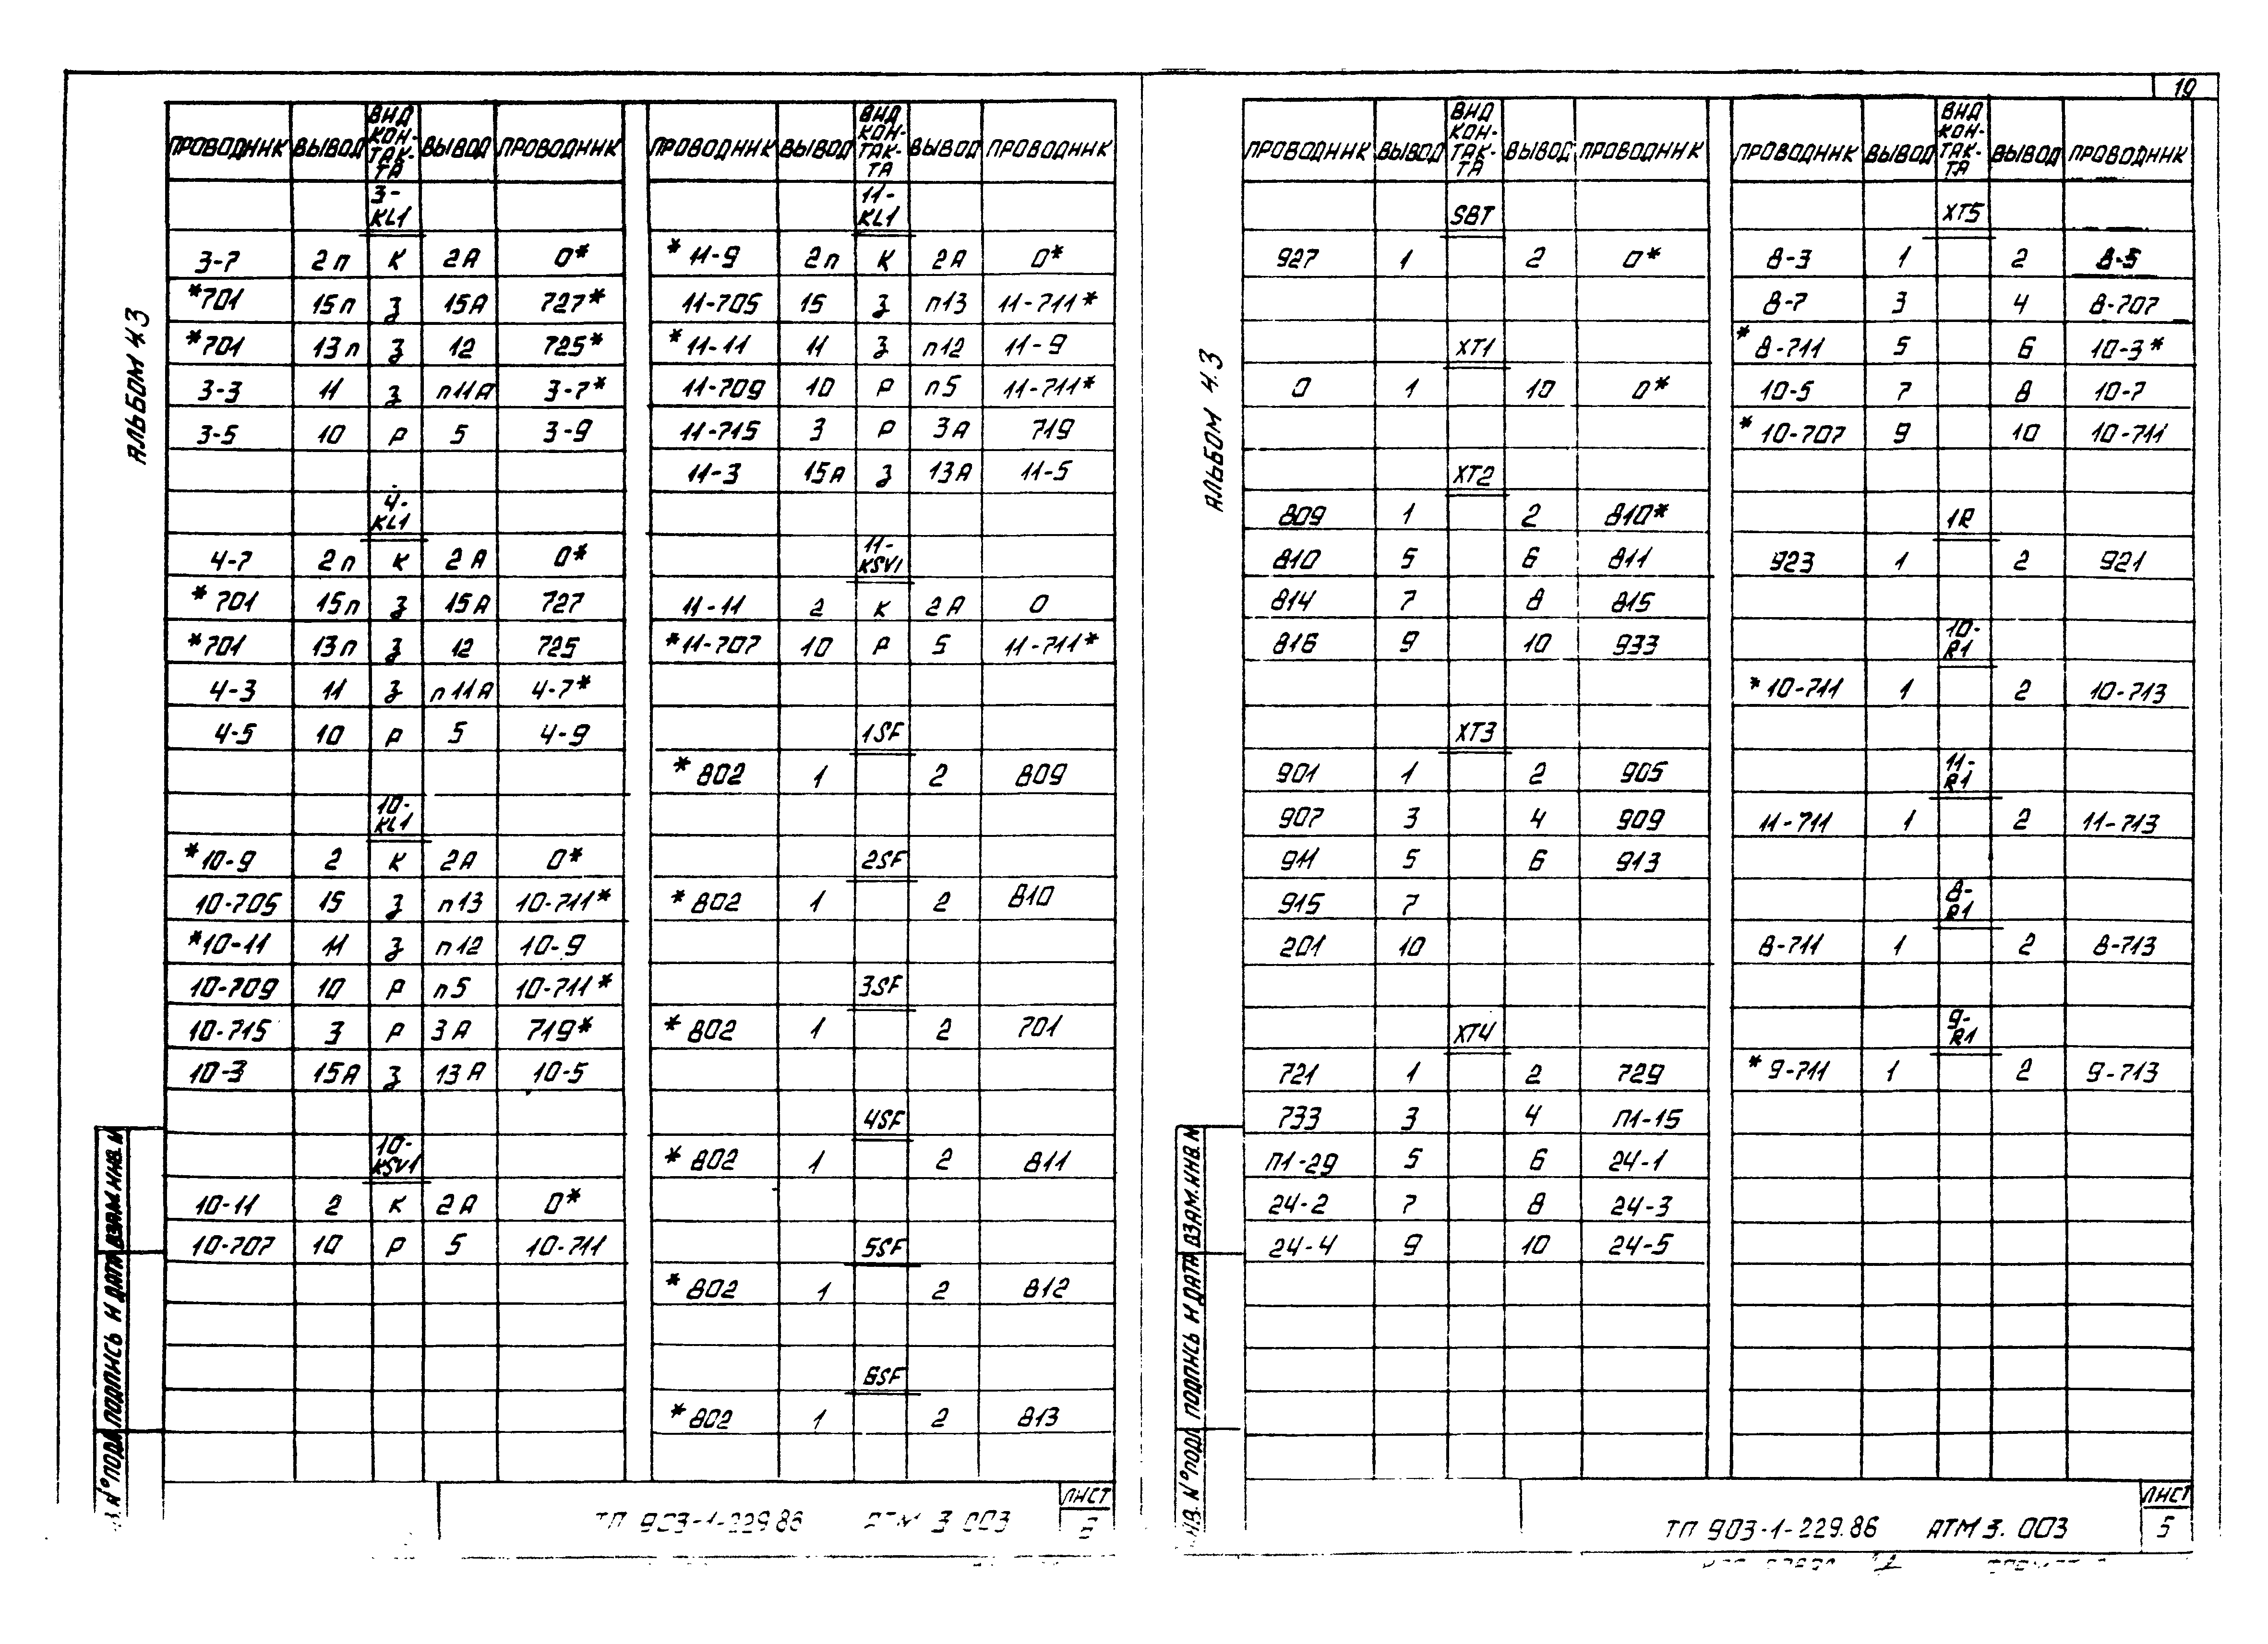 19
АЛЬБОМ 4.3
ПРОВОДНИК ВЫВОД ВИД КОН-ТАК-ТА ВЫВОД ПРОВОДНИК
3-KL1
3-7 2п К 2А 0*
*701 15п З 15А 727*
*701 13п З 12 725*
3-3 11 З п11А 3-7*
3-5 10 Р 5 3-9
4-KL1
4-7 2п К 2А 0*
*701 15п З 15А 727
*701 13п З 12 725
4-3 11 З п11А 4-7*
4-5 10 Р 5 4-9
10-KL1
*10-9 2 К 2А 0*
10-705 15 З п13 10-711*
*10-11 11 З п12 10-9
10-709 10 Р п5 10-711*
10-715 3 Р 3А 719*
10-3 15А З 13А 10-5
10-KSV1
10-11 2 К 2А 0*
10-707 10 Р 5 10-711
ПРОВОДНИК ВЫВОД ВИД КОН-ТАК-ТА ВЫВОД ПРОВОДНИК
11-KL1
*11-9 2п К 2А 0*
11-705 15 З п13 11-711*
*11-11 11 З п12 11-9
11-709 10 Р п5 11-711*
11-715 3 Р 3А 719
11-3 15А З 13А 11-5
11-KSV1
11-11 2 К 2А 0
*11-707 10 Р 5 11-711*
1SF
*802 1 2 809
2SF
*802 1 2 810
3SF
*802 1 2 701
4SF
*802 1 2 811
5SF
*802 1 2 812
6SF
*802 1 2 813
ПОДПИСЬ И ДАТА ВЗАМ.ИНВ.N
N°ПОДЛ
ТП 903-1-229.86 АТМ 3.003
ЛИСТ
АЛЬБОМ 4.3
ПРОВОДНИК ВЫВОД ВИД КОН-ТАК-ТА ВЫВОД ПРОВОДНИК
SBT
927 1 2 0*
XT1
0 1 10 0*
XT2
809 1 2 810*
810 5 6 811
814 7 8 815
816 9 10 933
XT3
901 1 2 905
907 3 4 909
911 5 6 913
915 7
201 10
XT4
721 1 2 729
733 3 4 П1-15
П1-29 5 6 24-1
24-2 7 8 24-3
24-4 9 10 24-5
ПРОВОДНИК ВЫВОД ВИД КОН-ТАК-ТА ВЫВОД ПРОВОДНИК
XT5
8-3 1 2 8-5
8-7 3 4 8-707
*8-711 5 6 10-3*
10-5 7 8 10-7
*10-707 9 10 10-711
1R
923 1 2 921
10-R1
*10-711 1 2 10-713
11-R1
11-711 1 2 11-713
8-R1
8-711 1 2 8-713
9-R1
*9-711 1 2 9-713
ПОДПИСЬ И ДАТА ВЗАМ.ИНВ.N
N°ПОДЛ
ТП 903-1-229.86 АТМ 3.003
ЛИСТ
5